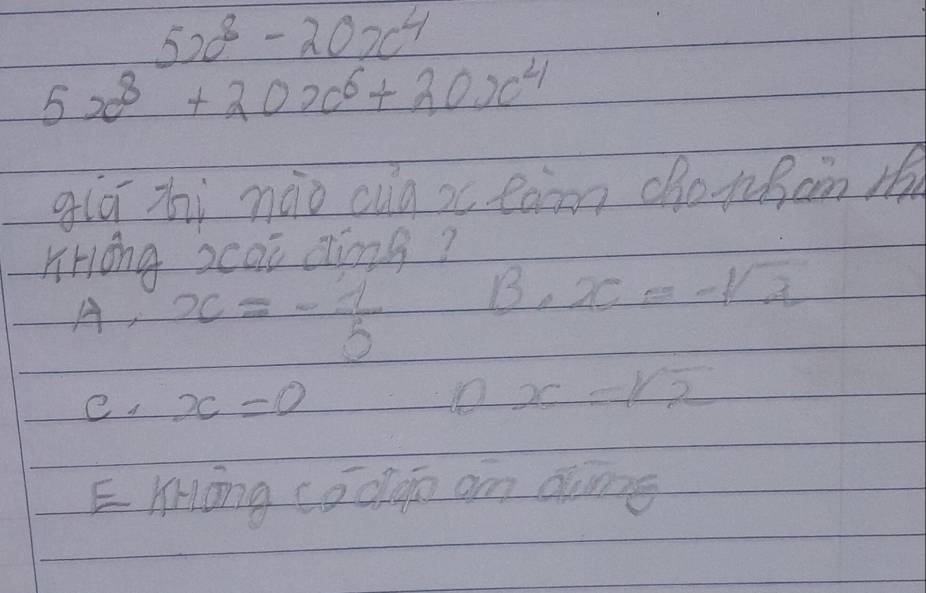 5x⁸ - 20x⁴
5x⁸ + 20x⁶ + 20x⁴
giá trị nào của x làm cho phân
không xác định?
A, x = -1/5 B, x = -√2
C, x = 0 D x = √2
E không có đáp án đúng